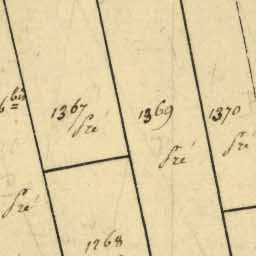 6 bis
1367
Pré
1369
Pré
1370
Pré
Pré
1268